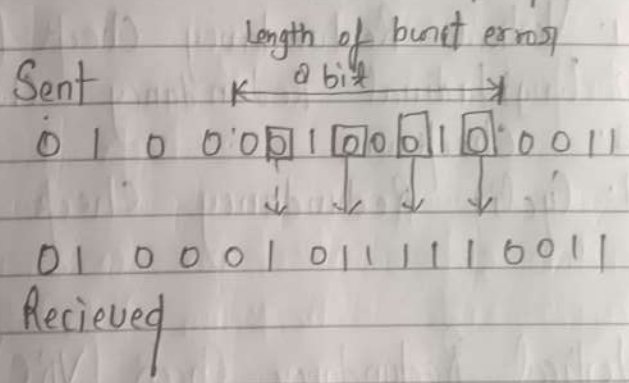 Length of burst error
8 bit
Sent
0 1 0 0 0 0 1 0 0 0 1 0 0 0 1 1
0 1 0 0 0 1 0 1 1 1 1 1 0 0 1 1
Recieved